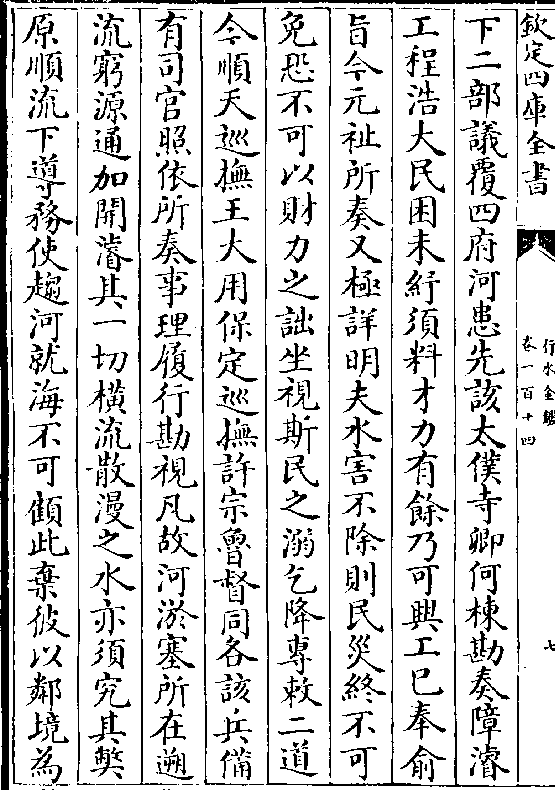 欽定四庫全書
行水金鑑
卷一百十四
七
下二部議覆四府河患先該太僕寺卿何棟勘奏障濬
工程浩大民困未紓須料才力有餘乃可興工已奉俞
旨今元祉所奏又極詳明夫水害不除則民災終不可
免恐不可以財力之詘坐視斯民之溺乞降專敕二道
令順天巡撫王大用保定巡撫許宗魯督同各該兵備
有司官照依所奏事理履行勘視凡故河淤塞所在遡
流窮源通加開濬其一切橫流散漫之水亦須究其弊
原順流下導務使趨河就海不可顧此棄彼以鄰境為